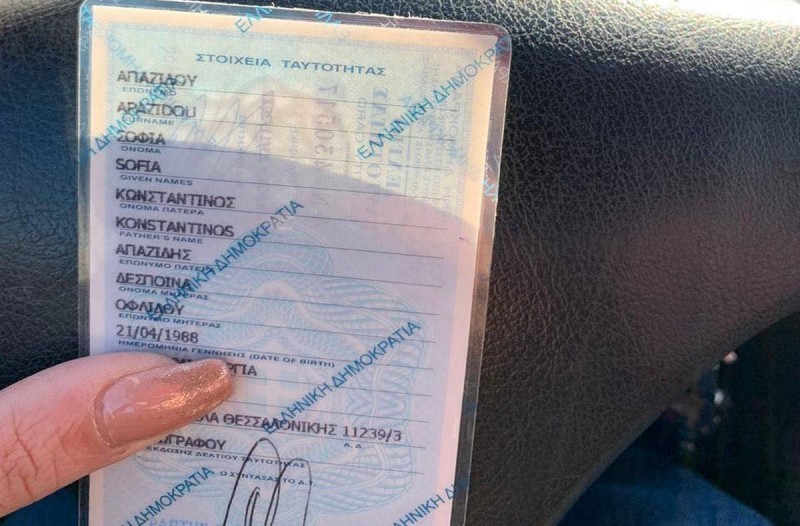 ΣΤΟΙΧΕΙΑ ΤΑΥΤΟΤΗΤΑΣ
ΑΠΑΖΙΔΟΥ
ΕΠΩΝΥΜΟ
APAZIDOU
SURNAME
ΣΟΦΙΑ
ΟΝΟΜΑ
SOFIA
GIVEN NAMES
ΚΩΝΣΤΑΝΤΙΝΟΣ
ΟΝΟΜΑ ΠΑΤΕΡΑ
KONSTANTINOS
FATHER'S NAME
ΑΠΑΖΙΔΗΣ
ΕΠΩΝΥΜΟ ΠΑΤΕΡΑ
ΔΕΣΠΟΙΝΑ
ΟΝΟΜΑ ΜΗΤΕΡΑΣ
ΟΦΛΙΔΟΥ
ΕΠΩΝΥΜΟ ΜΗΤΕΡΑΣ
21/04/1988
ΗΜΕΡΟΜΗΝΙΑ ΓΕΝΝΗΣΗΣ (DATE OF BIRTH)
ΘΕΣΣΑΛΟΝΙΚΗΣ 11239/3
Α.Δ.
ΕΚΔΟΣΗΣ ΔΕΛΤΙΟΥ ΤΑΥΤΟΤΗΤΑΣ
Ο ΣΥΝΤΑΞΑΣ ΤΟ Δ.Τ.
ΕΛΛΗΝΙΚΗ ΔΗΜΟΚΡΑΤΙΑ
ΕΛΛΗΝΙΚΗ ΔΗΜΟΚΡΑΤΙΑ
ΕΛΛΗΝΙΚΗ ΔΗΜΟΚΡΑΤΙΑ